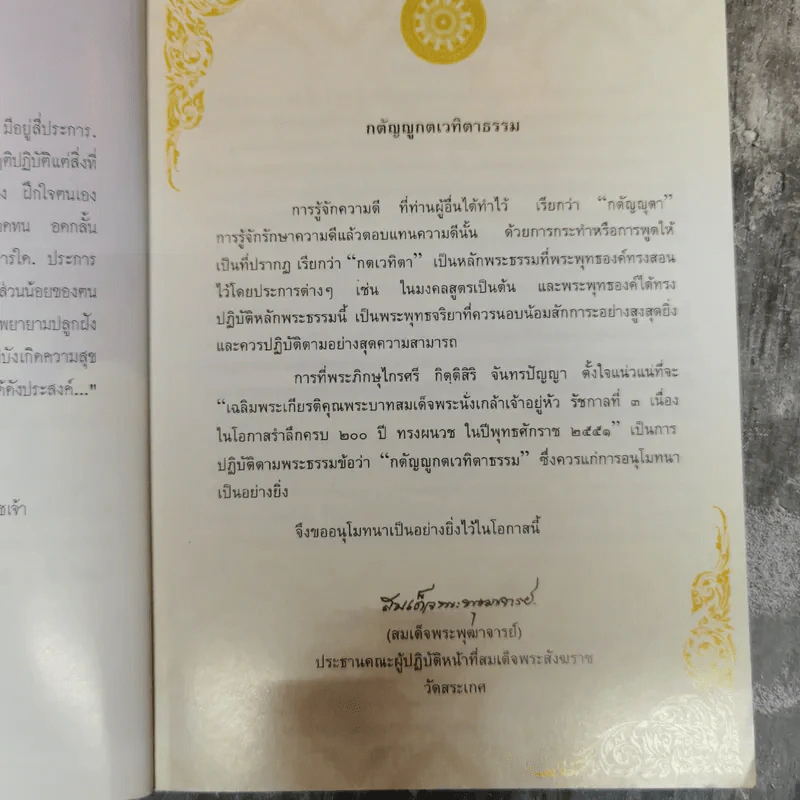 มีอยู่สี่ประการ.
ปฏิบัติแต่สิ่งที่
ฝึกใจตนเอง
อดกลั้น
การใด. ประการ
ส่วนน้อยของตน
พยายามปลูกฝัง
บังเกิดความสุข
ดังประสงค์..."
กตัญญูกตเวทิตาธรรม
การรู้จักความดี ที่ท่านผู้อื่นได้ทำไว้ เรียกว่า “กตัญญุตา”
การรู้จักรักษาความดีแล้วตอบแทนความดีนั้น ด้วยการกระทำหรือการพูดให้
เป็นที่ปรากฏ เรียกว่า “กตเวทิตา” เป็นหลักพระธรรมที่พระพุทธองค์ทรงสอน
ไว้โดยประการต่างๆ เช่น ในมงคลสูตรเป็นต้น และพระพุทธองค์ได้ทรง
ปฏิบัติหลักพระธรรมนี้ เป็นพระพุทธจริยาที่ควรนอบน้อมสักการะอย่างสูงสุดยิ่ง
และควรปฏิบัติตามอย่างสุดความสามารถ
การที่พระภิกษุไกรศรี กิตฺติสิริ จันทรปัญญา ตั้งใจแน่วแน่ที่จะ
“เฉลิมพระเกียรติคุณพระบาทสมเด็จพระนั่งเกล้าเจ้าอยู่หัว รัชกาลที่ ๓ เนื่อง
ในโอกาสรำลึกครบ ๒๐๐ ปี ทรงผนวช ในปีพุทธศักราช ๒๕๕๑” เป็นการ
ปฏิบัติตามพระธรรมข้อว่า “กตัญญูกตเวทิตาธรรม” ซึ่งควรแก่การอนุโมทนา
เป็นอย่างยิ่ง
จึงขออนุโมทนาเป็นอย่างยิ่งไว้ในโอกาสนี้
สมเด็จพระพุฒาจารย์
(สมเด็จพระพุฒาจารย์)
ประธานคณะผู้ปฏิบัติหน้าที่สมเด็จพระสังฆราช
วัดสระเกศ